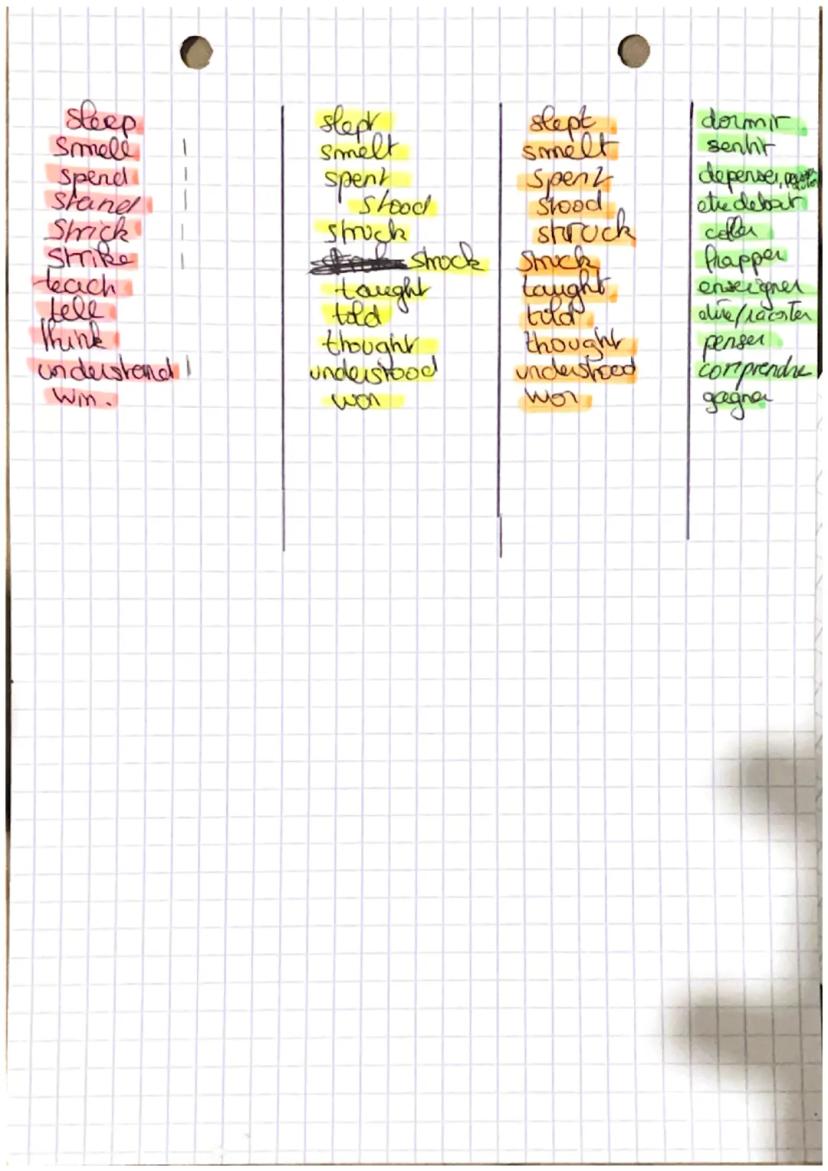 sleep slept slept dormir
smell smelt smelt sentir
spend spent spent depenser,
stand stood stood etre debout
Strick struck struck coller
Strike struck struck frapper
teach taught taught enseigner
tell told told dire/raconter
think thought thought penser
understand understood understood comprendre
win. won won gagner